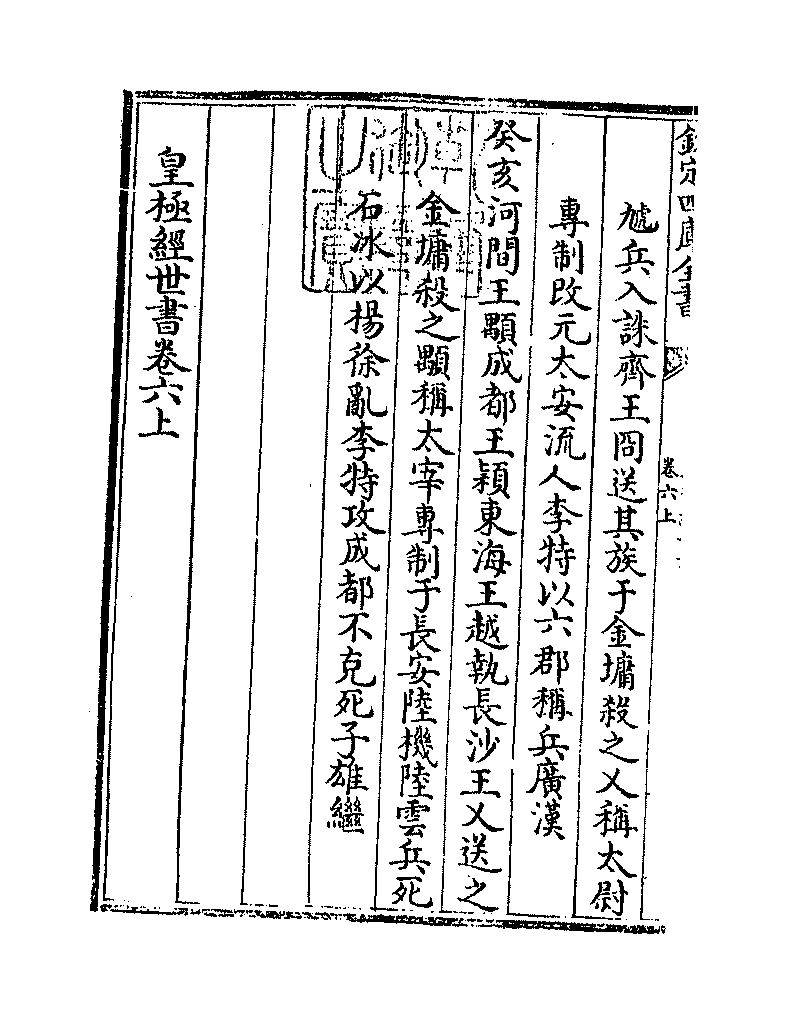 欽定四庫全書
卷六上
虓兵入誅齊王冏送其族于金墉殺之乂稱太尉
專制改元太安流人李特以六郡稱兵廣漢
癸亥河間王顒成都王穎東海王越執長沙王乂送之
金墉殺之顒稱太宰專制于長安陸機陸雲兵死
石冰以揚徐亂李特攻成都不克死子雄繼
皇極經世書卷六上